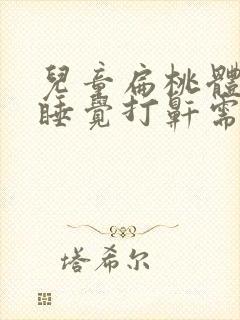 兒童扁桃體
睡覺打鼾需
塔希尔